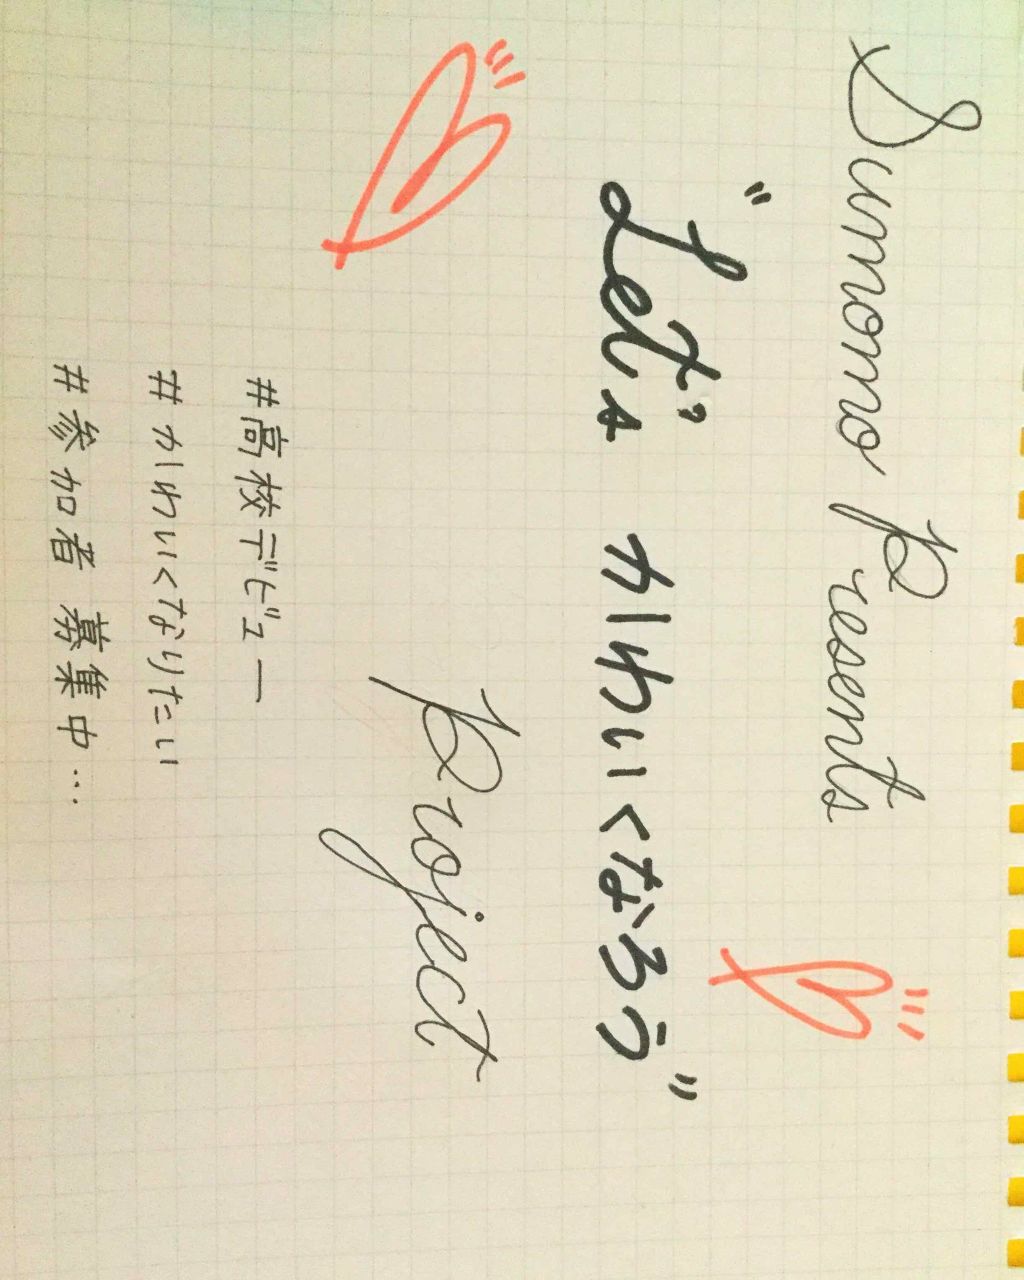 Sumomo Presents
"Let's かわいくなろう"
Project
#高校デビュー
#かわいくなりたい
#参加者 募集中…